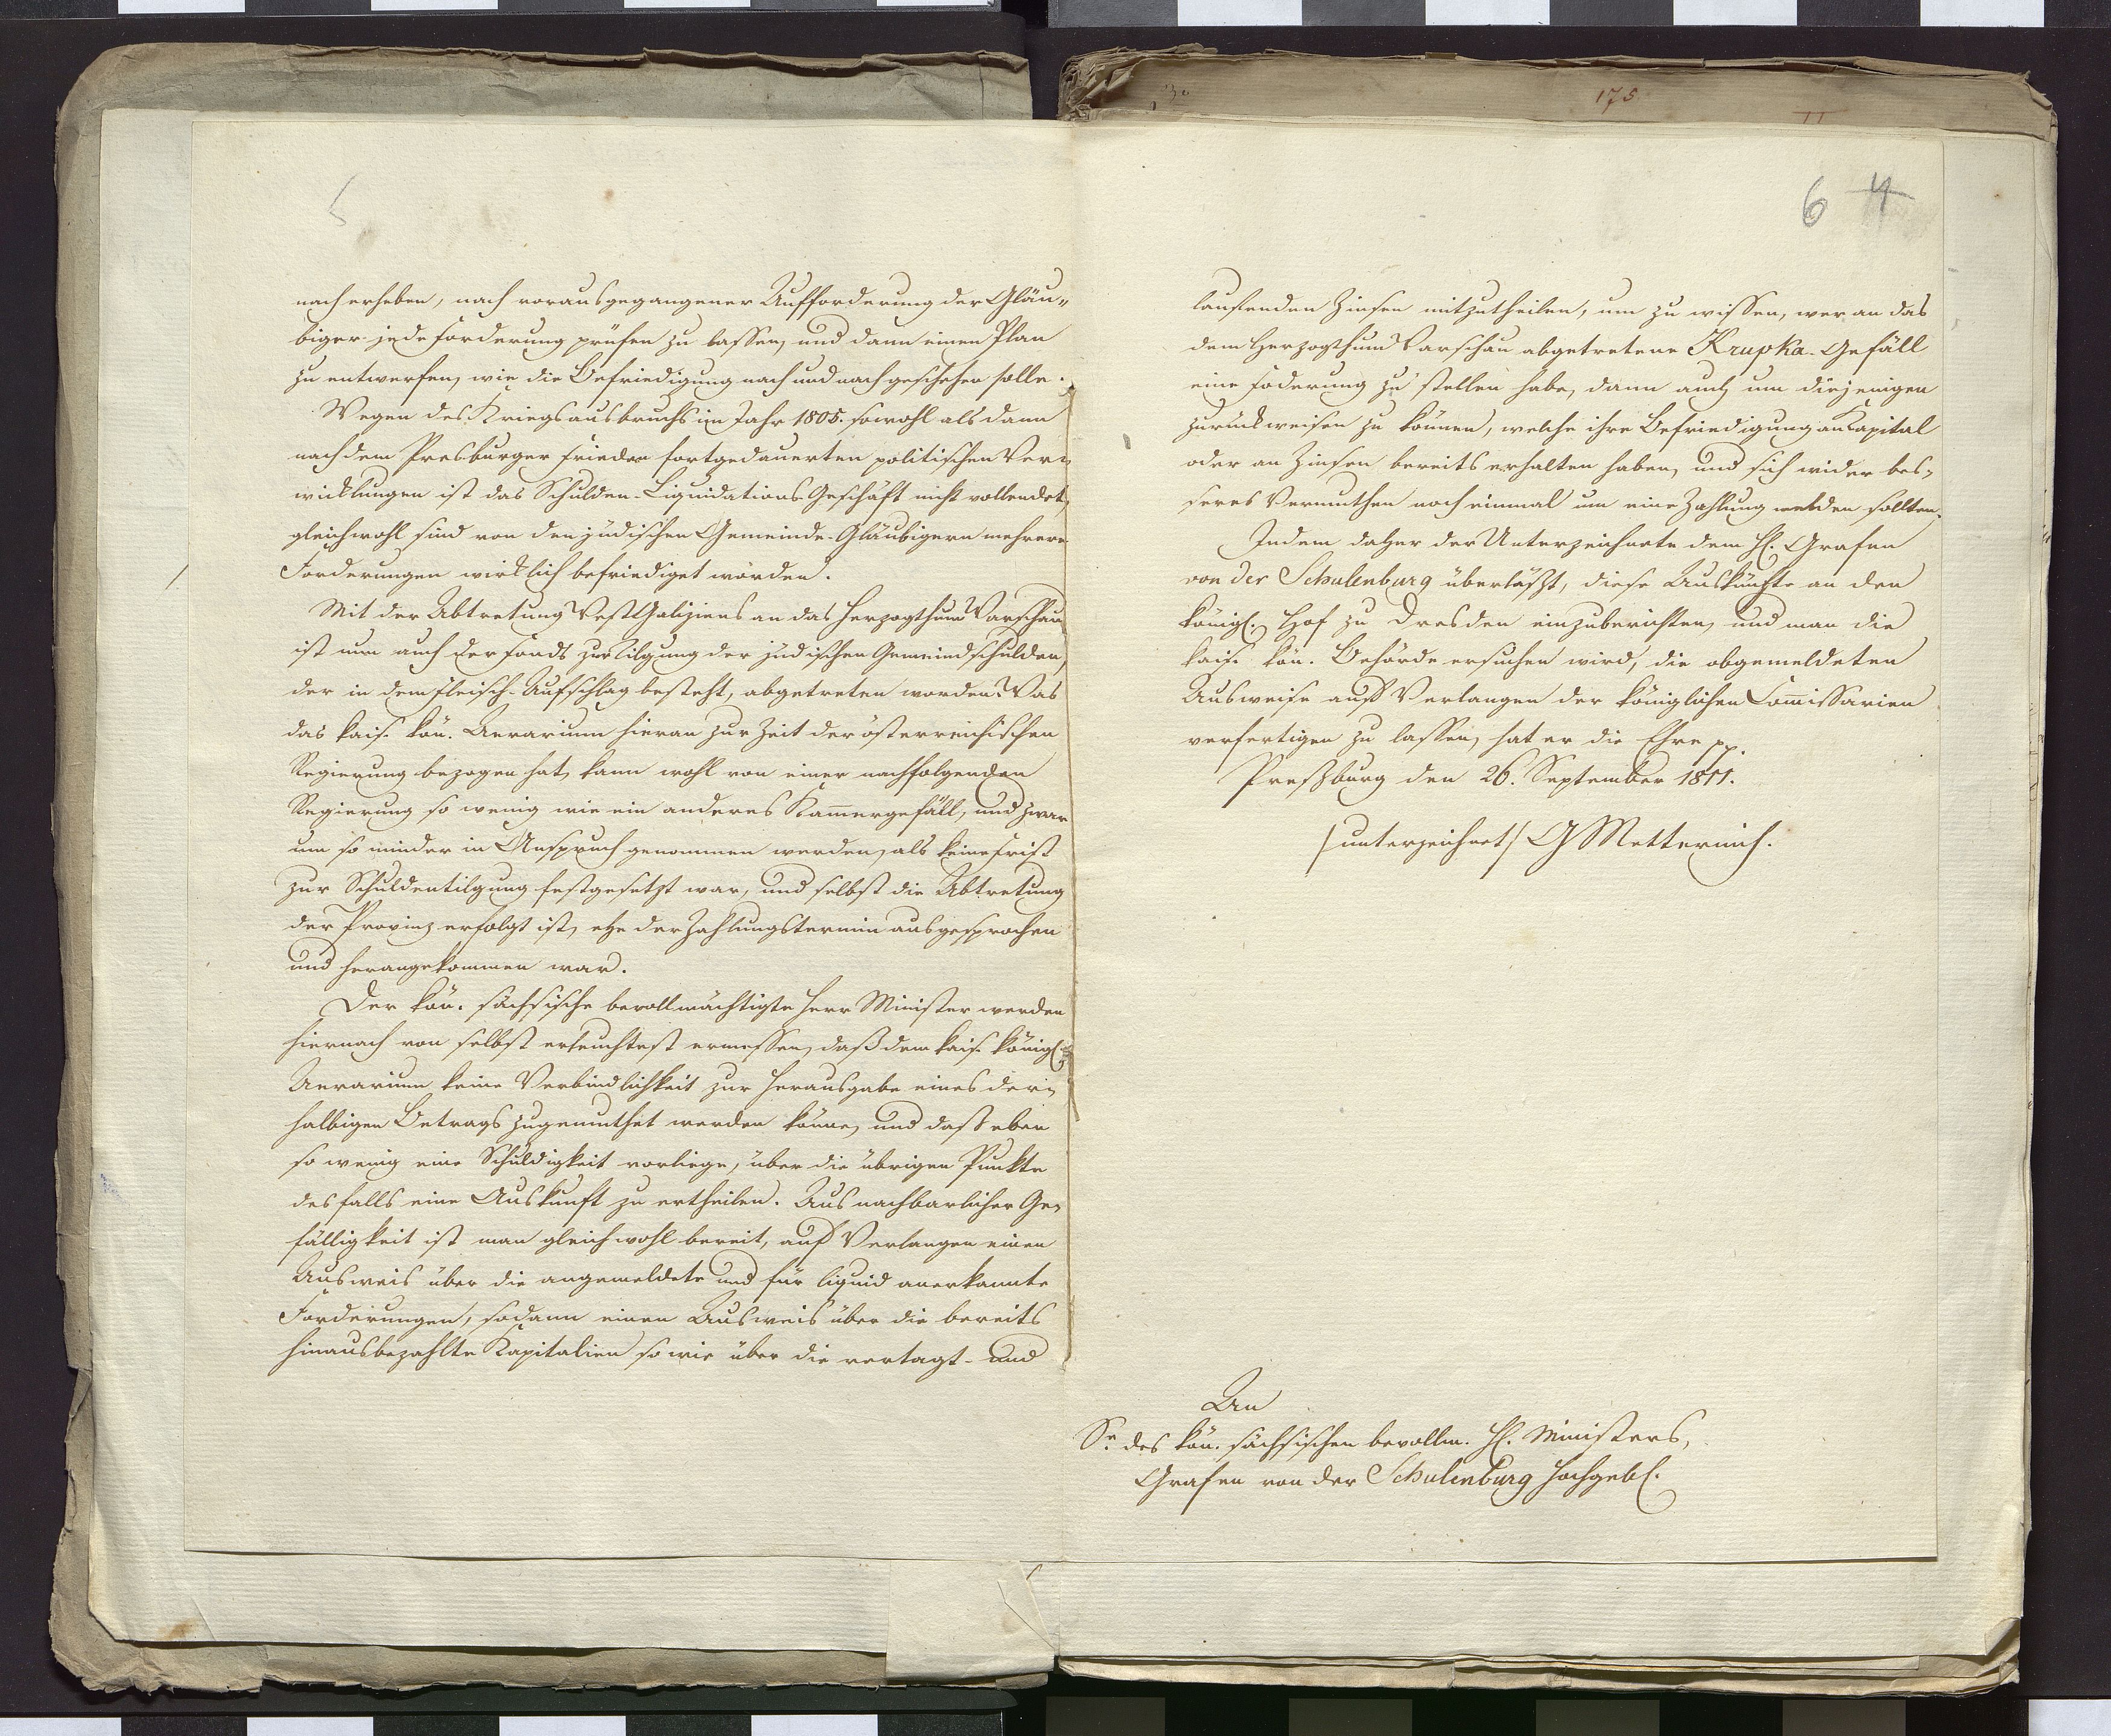 175
5
nach erheben, nach vorausgegangener Aufforderung der Gläu„
biger jede Forderung prüfen zu lassen, und dann einen Plan
zu entwerfen, wie die Befriedigung nach und nach geschehen solle.
Wegen des Kriegsausbruchs im Jahr 1805. sowohl als dann
nach dem Presburger Frieden fortgedauerten politischen Ver„
wicklungen ist das Schulden-Liquidations Geschäft nicht vollendet,
gleichwohl sind von den jüdischen Gemeinde-Gläubigern mehrere
Forderungen wirklich befriediget worden.
Mit der Abtretung West Galiziens an das Herzogthum Warschau
ist nun auch der Fonds zur Tilgung der jüdischen Gemeindschulden,
der in dem Fleisch-Aufschlag besteht, abgetreten worden. Was
das kais. kön. Aerarium hieran zur Zeit der österreichischen
Regierung bezogen hat, kann wohl von einer nachfolgenden
Regierung so wenig wie ein anderes Kammergefäll, und zwar
um so minder in Anspruch genommen werden, als keine Frist
zur Schuldentilgung festgesetzt war, und selbst die Abtretung
der Provinz erfolgt ist, ehe der Zahlungstermin ausgesprochen
und herangekommen war.
Der kön. sächsische bevollmächtigte Herr Minister werden
hiernach von selbst erleuchtest ermessen, daß dem kais. königl.
Aerarium keine Verbindlichkeit zur Herausgabe eines der„
halbigen Betrags zugemuthet werden könne, und daß eben
so wenig eine Schuldigkeit vorliege, über die übrigen Punkte
desfalls eine Auskunft zu ertheilen. Aus nachbarlicher Ge„
fälligkeit ist man gleichwohl bereit, auf Verlangen einen
Ausweis über die angemeldete und für liquid anerkannte
Forderungen, sodann einen Ausweis über die bereits
hinausbezahlte Kapitalien so wie über die vertagt- und
6 4
laufenden Zinsen mitzutheilen, um zu wissen, wer an das
dem Herzogthum Warschau abgetretene Krupka-Gefäll
eine Foderung zu stellen habe, dann auch um diejenigen
zurückweisen zu können, welche ihre Befriedigung an Kapital
oder an Zinsen bereits erhalten haben, und sich wider bes„
seres Vermuthen noch einmal um eine Zahlung melden sollten.
Indem daher der Unterzeichnete dem H. Grafen
von der Schulenburg überläßt, diese Auskünfte an den
königl. Hof zu Dresden einzuberichten, und man die
kais. kön. Behörde ersuchen wird, die obgemeldeten
Ausweise auf Verlangen der königlichen Commissarien
verfertigen zu lassen, hat er die Ehre pp.
Preßburg den 26. September 1811.
/unterzeichnet/ G Metternich.
An
Sr. des kön. sächsischen bevollm. H. Ministers,
Grafen von der Schulenburg Hochgeb.